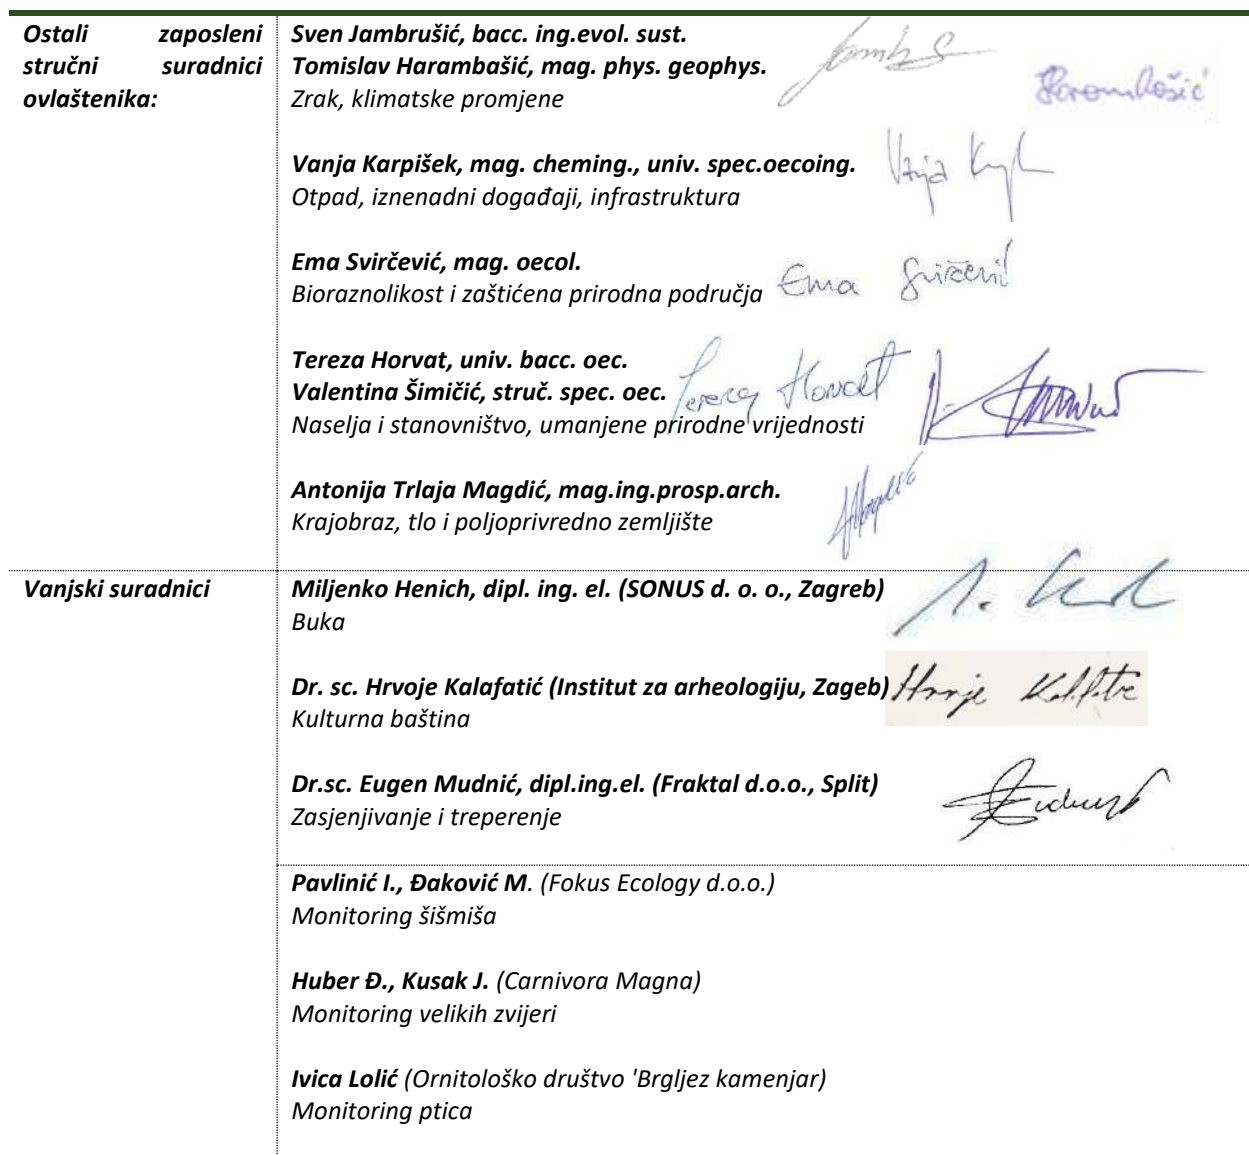 Ostali zaposleni
stručni suradnici
ovlaštenika:
Sven Jambrušić, bacc. ing.evol. sust.
Tomislav Harambašić, mag. phys. geophys.
Zrak, klimatske promjene
Vanja Karpišek, mag. cheming., univ. spec.oecoing.
Otpad, iznenadni događaji, infrastruktura
Ema Svirčević, mag. oecol.
Bioraznolikost i zaštićena prirodna područja
Ema Svirčević
Tereza Horvat, univ. bacc. oec.
Valentina Šimičić, struč. spec. oec.
Tereza Horvat
Naselja i stanovništvo, umanjene prirodne vrijednosti
Antonija Trlaja Magdić, mag.ing.prosp.arch.
Krajobraz, tlo i poljoprivredno zemljište
Vanjski suradnici
Miljenko Henich, dipl. ing. el. (SONUS d. o. o., Zagreb)
Buka
Dr. sc. Hrvoje Kalafatić (Institut za arheologiju, Zageb)
Kulturna baština
Dr.sc. Eugen Mudnić, dipl.ing.el. (Fraktal d.o.o., Split)
Zasjenjivanje i treperenje
Pavlinić I., Đaković M. (Fokus Ecology d.o.o.)
Monitoring šišmiša
Huber Đ., Kusak J. (Carnivora Magna)
Monitoring velikih zvijeri
Ivica Lolić (Ornitološko društvo 'Brgljez kamenjar)
Monitoring ptica